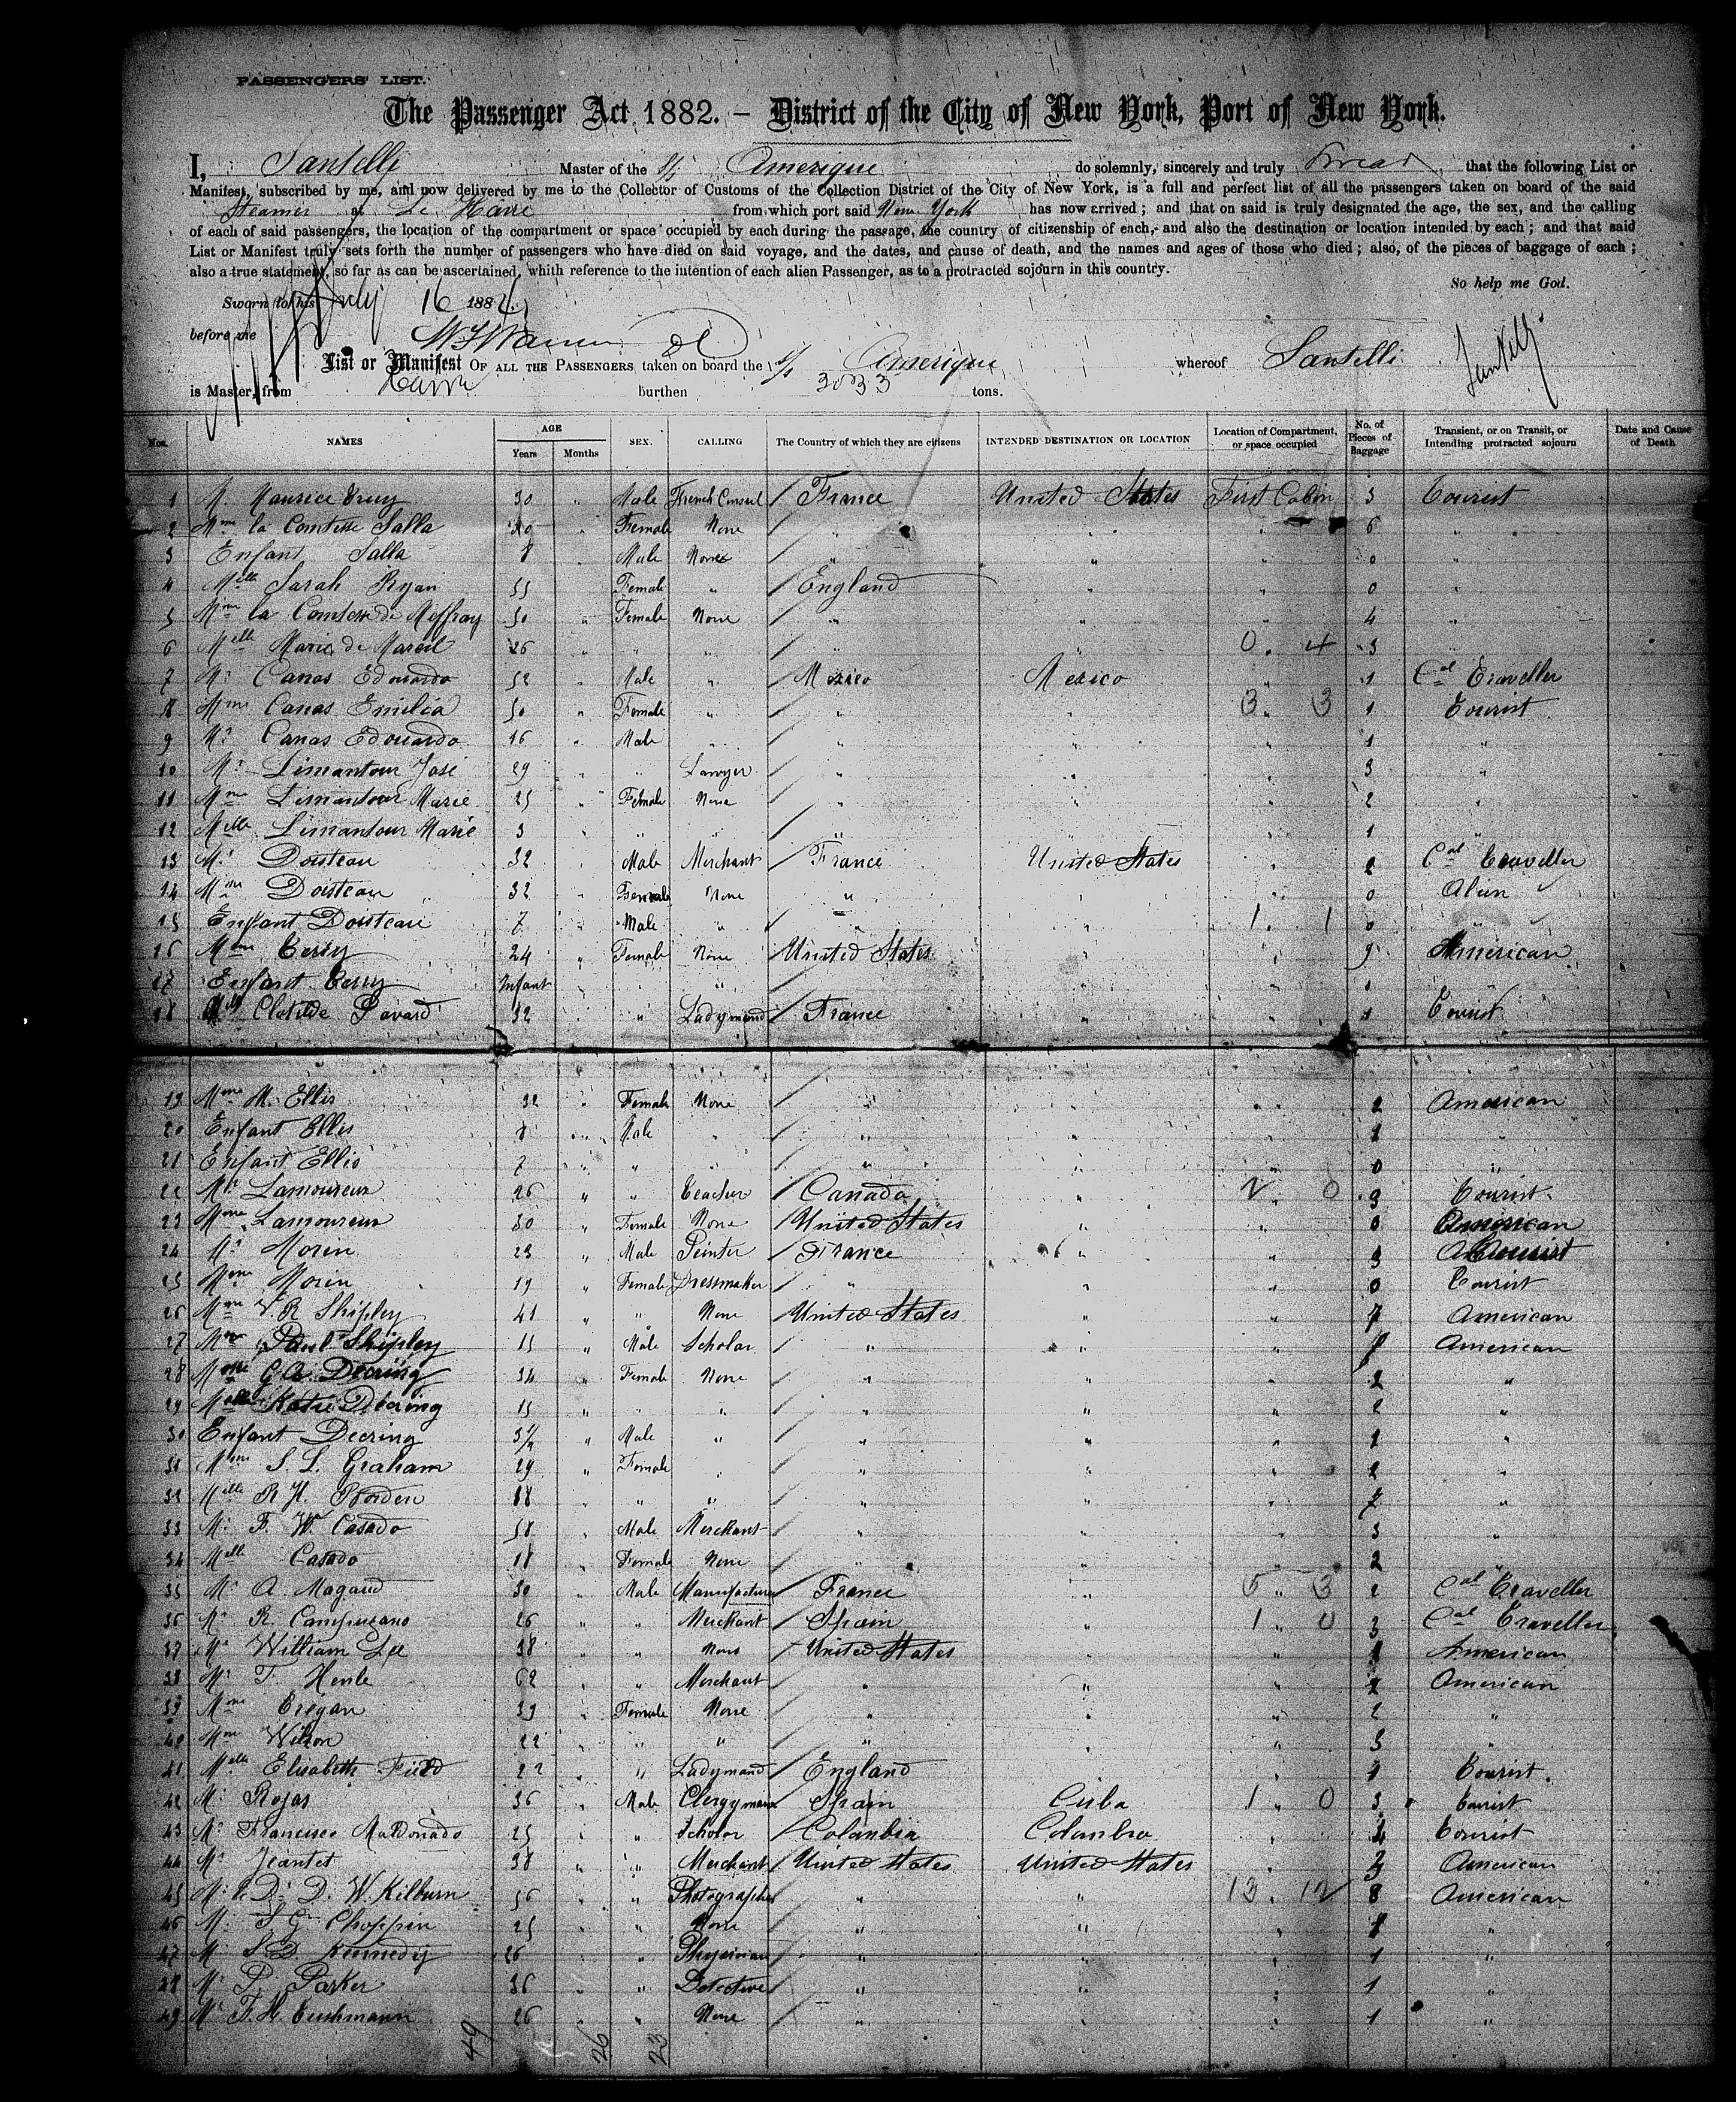 PASSENGERS' LIST.
The Passenger Act 1882. – District of the City of New York, Port of New York.
I, Santelli Master of the S/s Amerique do solemnly, sincerely and truly Swear that the following List or
Manifest, subscribed by me, and now delivered by me to the Collector of Customs of the Collection District of the City of New York, is a full and perfect list of all the passengers taken on board of the said
Steamer at Le Havre from which port said New York has now arrived; and that on said is truly designated the age, the sex, and the calling
of each of said passengers, the location of the compartment or space occupied by each during the passage, the country of citizenship of each, and also the destination or location intended by each; and that said
List or Manifest truly sets forth the number of passengers who have died on said voyage, and the dates, and cause of death, and the names and ages of those who died; also, of the pieces of baggage of each;
also a true statement, so far as can be ascertained, whith reference to the intention of each alien Passenger, as to a protracted sojourn in this country.
So help me God.
Sworn to this July 16 188
before me
List or Manifest OF ALL THE PASSENGERS taken on board the S/s Amerique whereof Santelli
is Master, from Havre burthen 3033 tons.
Nos. NAMES AGE Years Months SEX. CALLING The Country of which they are citizens INTENDED DESTINATION OR LOCATION Location of Compartment, or space occupied No. of Pieces of Baggage Transient, or on Transit, or Intending protracted sojourn Date and Cause of Death
1 M. Maurice 30 " Male French Consul France United States First Cabin 3 Tourist
2 Mme la Comtesse Salla " Female None " " " 6 "
3 Enfant Salla 8 Male None " " " 0 "
4 Melle Sarah Ryan 55 Female " England " " 0 "
5 Mme la Comtesse de Meffray 50 " Female None " " " 4 "
6 Melle Marie de Mareil 26 " " " " " 0 4 3 "
7 Mr Canas Edouardo 52 " Male " Mexico Mexico " 1 Cal Traveller
8 Mme Canas Emilia 50 " Female " " " 3 3 1 Tourist
9 Mr Canas Edouardo 16 " Male " " " " 1 "
10 Mr Limantour José 29 " " Lawyer " " " 3 "
11 Mme Limantour Marie 25 " Female None " " " 2 "
12 Melle Limantour Marie 3 " " " " " " 1 "
13 Mr Doisteau 32 " Male Merchant France United States " 2 Cal Traveller
14 Mme Doisteau 32 " Female None " " " 0 Alien
15 Enfant Doisteau 7 " Male " " " 1 1 0 "
16 Mme Terry 24 " Female None United States " " 9 American
17 Enfant Terry Infant " " " " " " 1 "
18 Melle Clotilde Pavard 32 " " Ladymaid France " " 1 Tourist
19 Mme M. Ellis 32 " Female None " " " 2 American
20 Enfant Ellis 8 " Male " " " " 1 "
21 Enfant Ellis 7 " " " " " " 0 "
22 Mr Lamoureux 26 " " Teacher Canada " 2 0 3 Tourist
23 Mme Lamoureux 30 " Female None United States " " 0 American
24 Mr Morin 23 " Male Peinter France " " 3 Tourist
25 Mme Morin 19 " Female Dressmaker " " " 0 Tourist
26 Mme W R Shipley 41 " " None United States " " 7 American
27 Mr Paul Shipley 15 " Male Scholar " " " 1 American
28 Mme G.A. Deering 34 " Female None " " " 2 "
29 Melle Katie Deering 15 " " " " " " 2 "
30 Enfant Deering 3½ " Male " " " " 1 "
31 Mme S. L. Graham 29 " Female " " " " 2 "
32 Melle R H. Borden 18 " " " " " " 7 "
33 Mr F. W. Casado 58 " Male Merchant " " " 3 "
34 Melle Casado 18 " Female None " " " 2 "
35 Mr A. Magaud 30 " Male Manufacturer France " 5 3 2 Cal Traveller
36 Mr R. Campuzano 26 " " Merchant Spain " 1 0 3 Cal Traveller
37 Mr William Lee 38 " " None United States " " 1 American
38 Mr F. Henle 62 " " Merchant " " " 2 American
39 Mme Tregan 39 " Female None " " " 2 "
40 Mme Wilson 22 " " " " " " 3 "
41 Melle Elisabeth Field 22 " " Ladymaid England " " 1 Tourist.
42 Mr Rojas 36 " Male Clergyman Spain Cuba 1 0 3 Tourist
43 Mr Francisco Maldonado 25 " " Scholar Colombia Colombia " 4 Tourist
44 Mr Jeantet 38 " " Merchant United States United States " 2 American
45 Mr D. W. Kilburn 56 " " Photographer " " 13 12 8 American
46 Mr S G. Choppin 25 " " None " " " 1 "
47 Mr S. D. Kennedy 26 " " Physician " " " 1 "
48 Mr P. Parker 36 " " Detective " " " 1 "
49 Mr F. H. Tuchmann 26 " " None " " " 1 "
49 26 23